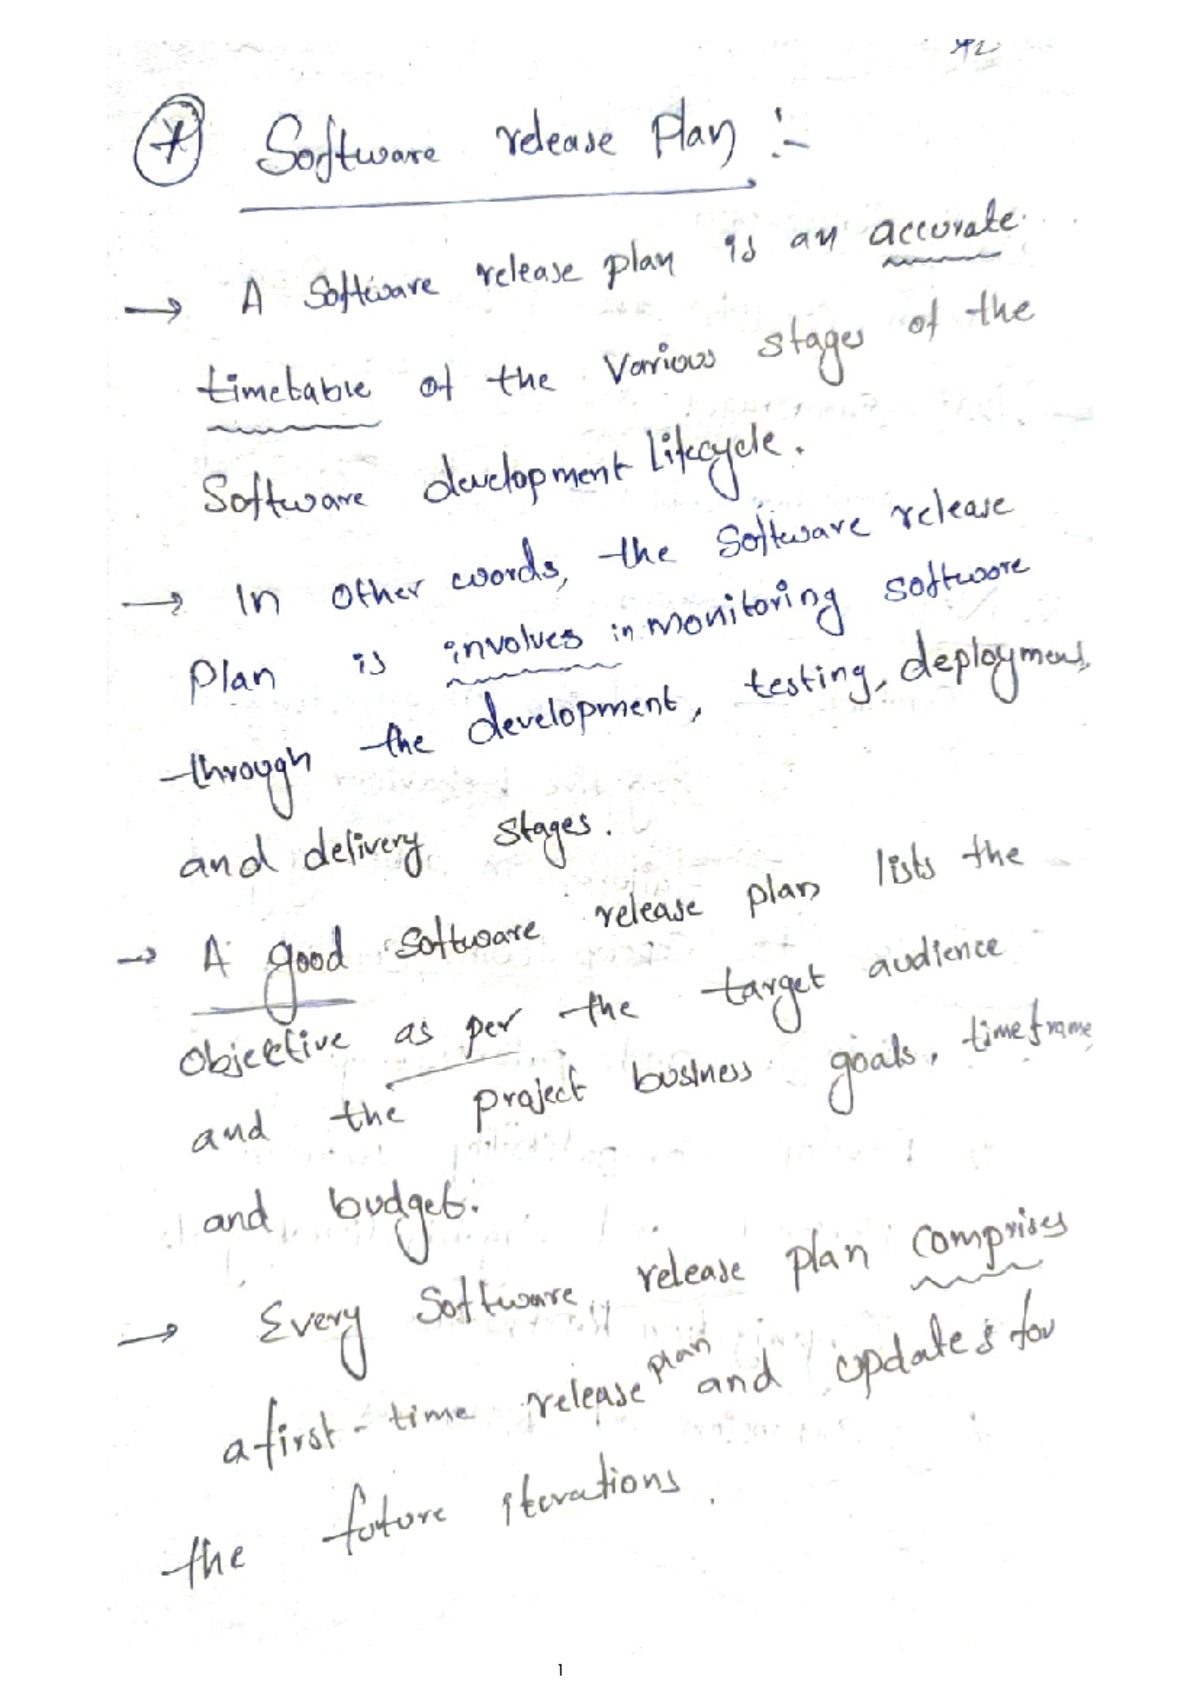 Software release Plan :-
→ A Software release plan is an accurate
timetable of the Various stages of the
Software development Lifecycle.
→ In other words, the software release
Plan is involves in monitoring software
through the development, testing, deployment,
and delivery stages.
→ A good software release plan lists the
objective as per the target audience
and the project business goals, timeframe
and budget.
→ Every Software release plan comprises
a first-time release plan and updates for
the future iterations.
1